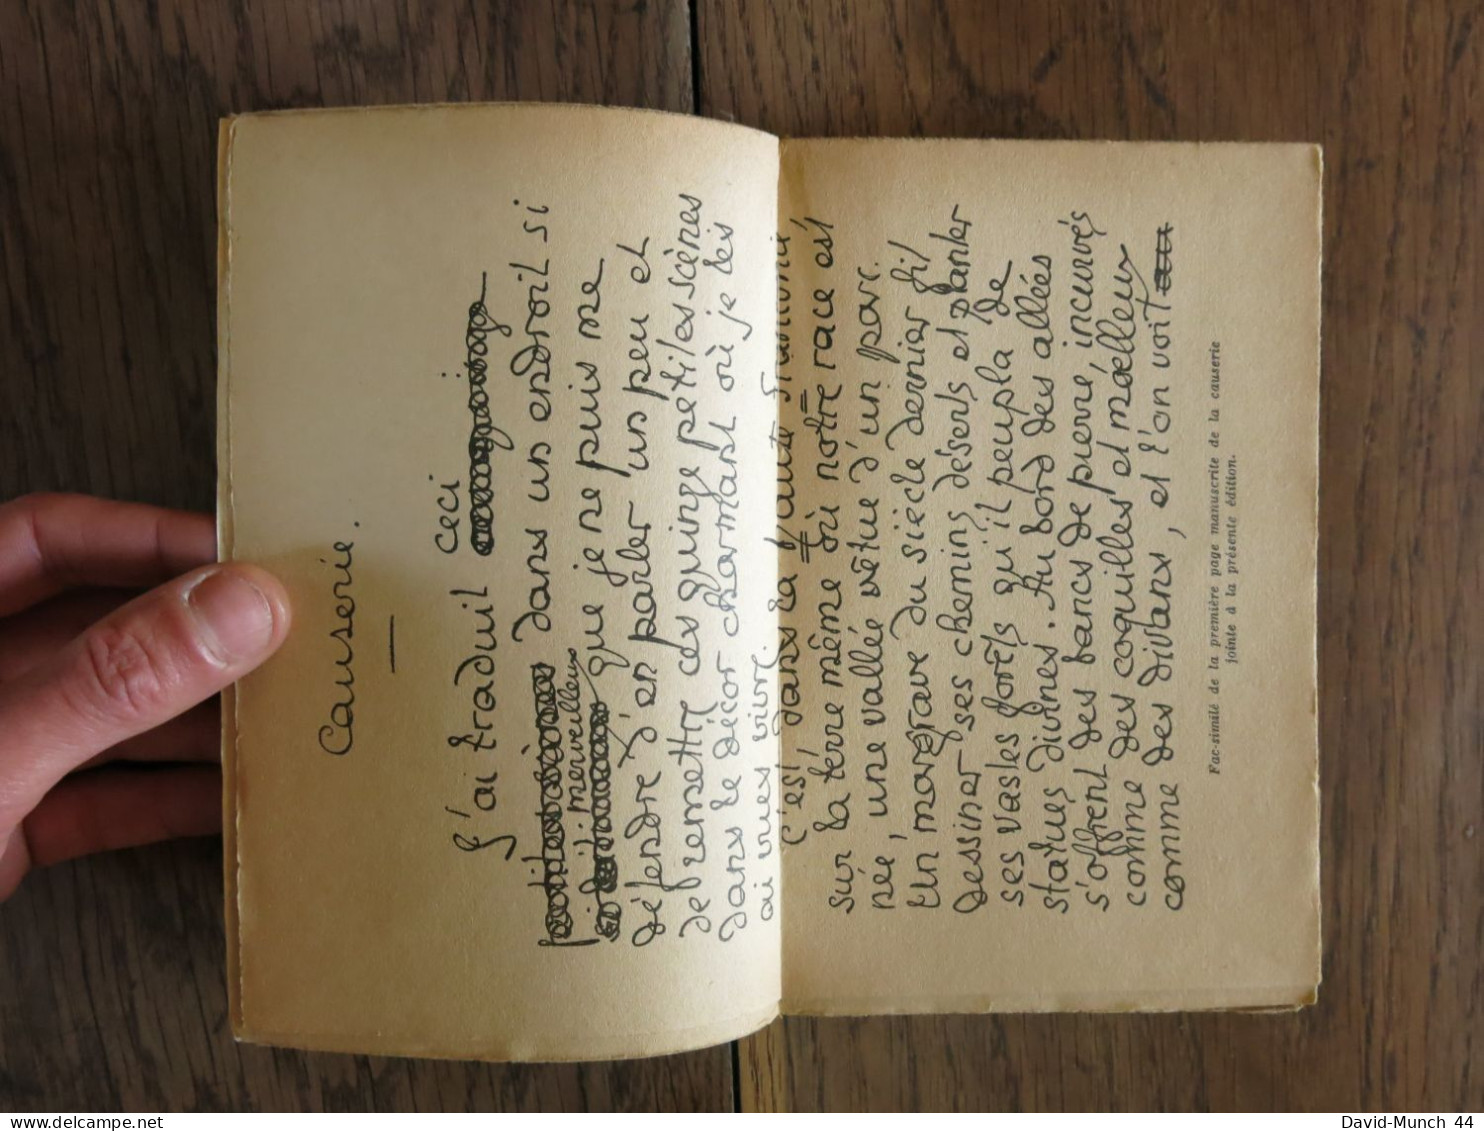 Causerie.
J'ai traduit ceci
dans un endroit si
merveilleux
que je ne puis me
défendre d'en parler un peu et
de remettre ces quinze petites scènes
dans le décor charmant où je les
ai vues vivre.
C'est dans la
sur la terre même où notre race est
née, une vallée vêtue d'un parc.
Un margrave du siècle dernier fit
dessiner ses chemins déserts et planter
ses vastes forêts qu'il peupla de
statues divines. Au bord des allées
s'offrent des bancs de pierre, incurvés
comme des coquilles et moelleux
comme des divans, et l'on voit
Fac-similé de la première page manuscrite de la causerie
jointe à la présente édition.
David-Munch 44
delcampe.net